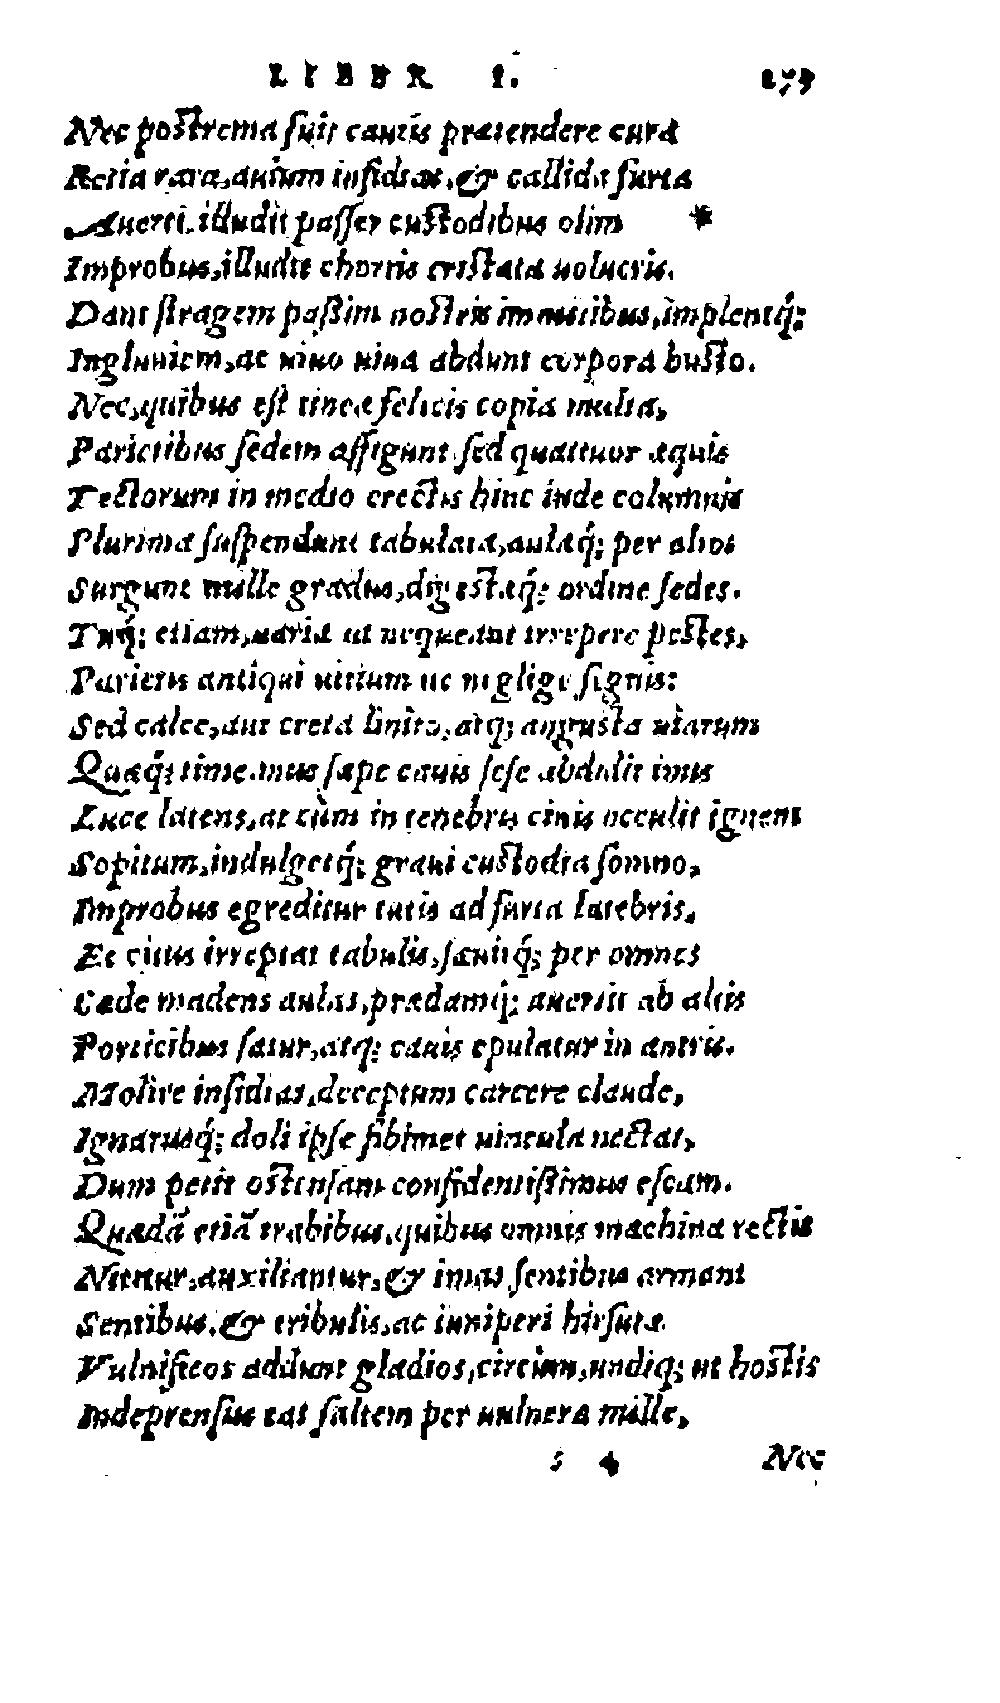 LIBER I. 273
Nec postrema fuit cautis prætendere cura
Retia rara, auium insidias, & callida furta
Auerti. illudit passer custodibus olim *
Improbus, illudit chortis cristata uolucris.
Dant stragem passim nostris immitibus, implentq́;
Ingluuiem, ac uiuo uiua abdunt corpora busto.
Nec, quibus est tineæ felicis copia multa,
Parietibus sedem affigunt sed quattuor æquis
Tectorum in medio erectis hinc inde columnis
Plurima suspendunt tabulata, aulaq́; per altos
Surgunt mille gradus, digestæq́; ordine sedes.
Tuq́; etiam, uariæ ut nequeant irrepere pestes,
Parietis antiqui uitium ne neglige signis:
Sed calce, aut creta linito, atq; angusta uiarum
Quaq́; time. mus sæpe cauis sese abdidit imis
Luce latens, at cùm in tenebris cinis occulit ignem
Sopitum, indulgetq́; graui custodia somno,
Improbus egreditur tutis ad furta latebris.
Et citus irreptat tabulis, sæuitq́; per omnes
Cæde madens aulas, prædamq́; auertit ab altis
Porticibus satur, atq; cauis epulatur in antris.
Molire insidias, deceptum carcere claude,
Ignarusq́; doli ipse sibimet uincula nectat,
Dum petit ostensam confidentissimus escam.
Quædā etiā trabibus, quibus omnis machina rectis
Nititur, auxiliantur, & imas sentibus armant
Sentibus, & tribulis, ac iuniperi hirsutæ
Vulnificos addunt gladios, circùm, undiq; ut hostis
Indeprensus eat saltem per uulnera mille,
s 4 Nec